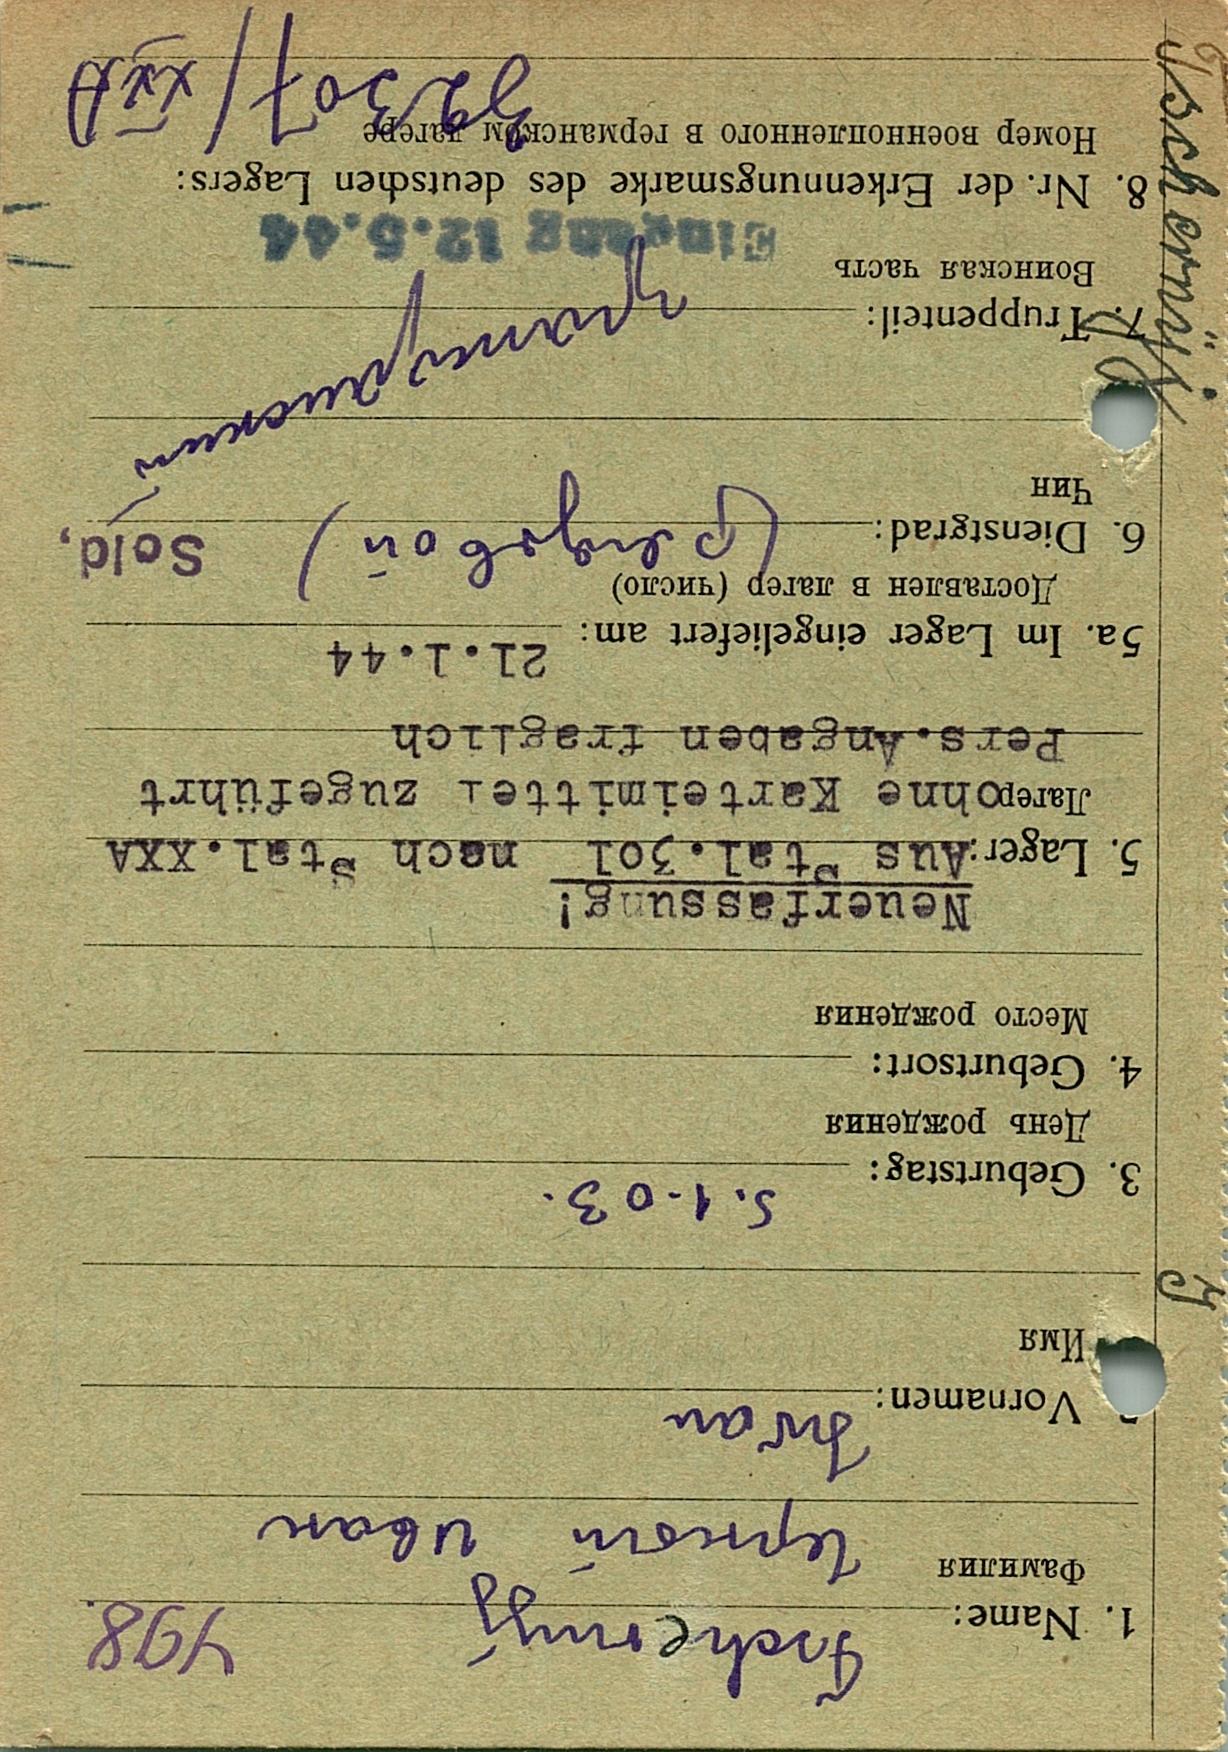 Tschernüj
498.
1. Name: Tschernyj
Фамилия
Черный Иван
Vornamen: Iwan
Имя
3. Geburtstag: 5.1.03.
День рождения
4. Geburtsort:
Место рождения
Neuerfassung!
5. Lager: Aus Stal.301 nach Stal.XXA
Лагерь ohne Karteimittel zugeführt
Pers.Angaben fraglich
5a. Im Lager eingeliefert am: 21.1.44
Доставлен в лагер (число)
6. Dienstgrad: (рядовой) Sold,
Чин
7. Truppenteil:
Воинская часть
гражданский
Eingang 12.5.44
8. Nr. der Erkennungsmarke des deutschen Lagers:
Номер военнопленного в германском лагере
32307/XXA